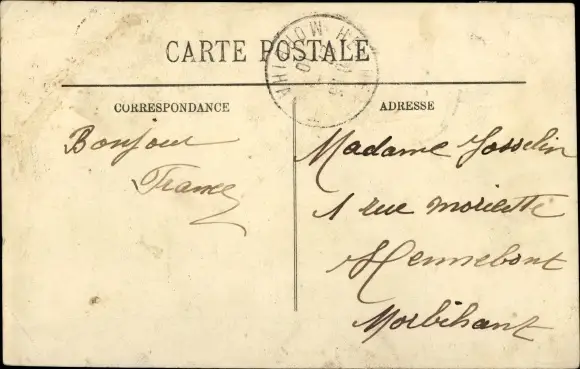 CARTE POSTALE
CORRESPONDANCE
Bonjour
ADRESSE
Madame Josselin
1 rue
Hennebont
Morbihant